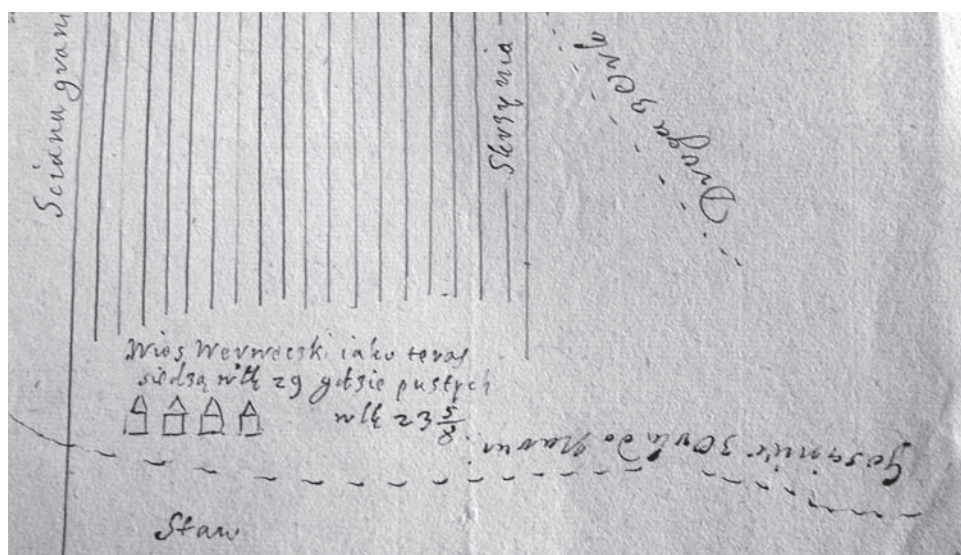 Sciana gran
Skrzynia
Droga z Orla
Wies Werweczki iako teraz
siedzą włk 29 gdzie pustych
włk 23 5/8
Gosciniec z Orla do
Staw